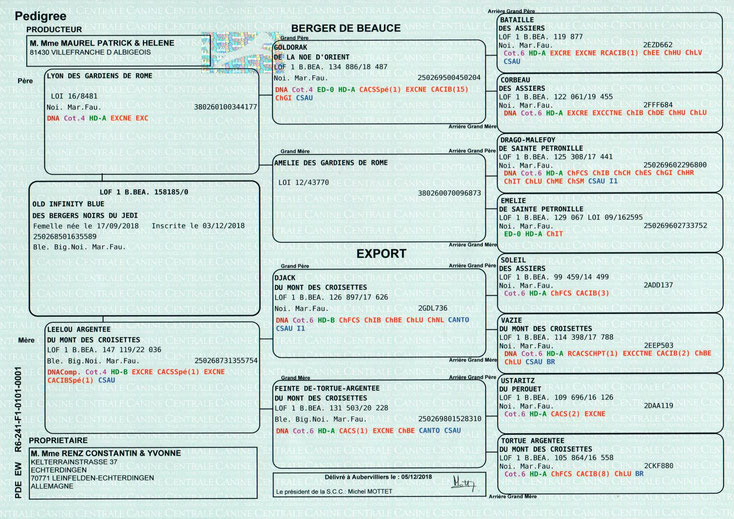 Pedigree
PRODUCTEUR
M. Mme MAUREL PATRICK & HELENE
81430 VILLEFRANCHE D ALBIGEOIS
BERGER DE BEAUCE
Père
LYON DES GARDIENS DE ROME
LOI 16/8481
Noi. Mar.Fau. 380260100344177
DNA Cot.4 HD-A EXCNE EXC
LOF 1 B.BEA. 158185/0
OLD INFINITY BLUE
DES BERGERS NOIRS DU JEDI
Femelle née le 17/09/2018 Inscrite le 03/12/2018
250268501635589
Ble. Big.Noi. Mar.Fau.
Mère
LEELOU ARGENTEE
DU MONT DES CROISETTES
LOF 1 B.BEA. 147 119/22 036
Ble. Big.Noi. Mar.Fau. 250268731355754
DNAComp. Cot.4 HD-B EXCRE CACSSpé(1) EXCNE
CACIBSpé(1) CSAU
PROPRIETAIRE
M. Mme RENZ CONSTANTIN & YVONNE
KELTERRAINSTRASSE 37
ECHTERDINGEN
70771 LEINFELDEN-ECHTERDINGEN
ALLEMAGNE
PDE EW R6-241-F1-0101-0001
Grand Père
GOLDORAK
DE LA NOE D'ORIENT
LOF 1 B.BEA. 134 886/18 487
Noi. Mar.Fau. 250269500450204
DNA Cot.4 ED-0 HD-A CACSSpé(1) EXCNE CACIB(15)
ChGI CSAU
Arrière Grand Mère
Grand Mère
Arrière Grand Père
AMELIE DES GARDIENS DE ROME
LOI 12/43770
380260070096873
Arrière Grand Mère
EXPORT
Grand Père
Arrière Grand Père
DJACK
DU MONT DES CROISETTES
LOF 1 B.BEA. 126 897/17 626
Noi. Mar.Fau. 2GDL736
DNA Cot.6 HD-B ChFCS ChIB ChBE ChLU ChNL CANTO
CSAU I1
Arrière Grand Mère
Grand Mère
Arrière Grand Père
FEINTE DE-TORTUE-ARGENTEE
DU MONT DES CROISETTES
LOF 1 B.BEA. 131 503/20 228
Ble. Big.Noi. Mar.Fau. 250269801528310
DNA Cot.6 HD-A CACS(1) EXCNE ChBE CANTO CSAU
Délivré à Aubervilliers le : 05/12/2018
Le président de la S.C.C.: Michel MOTTET
Arrière Grand Père
BATAILLE
DES ASSIERS
LOF 1 B.BEA. 119 877
Noi. Mar.Fau. 2EZD662
Cot.6 HD-A EXCRE EXCNE RCACIB(1) ChEE ChHU ChLV
CSAU
CORBEAU
DES ASSIERS
LOF 1 B.BEA. 122 061/19 455
Noi. Mar.Fau. 2FFF684
DNA Cot.6 HD-A EXCRE EXCCTNE ChIB ChDE ChHU ChLU
DRAGO-MALEFOY
DE SAINTE PETRONILLE
LOF 1 B.BEA. 125 308/17 441
Noi. Mar.Fau. 250269602296800
DNA Cot.6 HD-A ChFCS ChIB ChCH ChES ChGI ChHR
ChIT ChLU ChME ChSM CSAU I1
EMELIE
DE SAINTE PETRONILLE
LOF 1 B.BEA. 129 067 LOI 09/162595
Noi. Mar.Fau. 250269602733752
ED-0 HD-A ChIT
SOLEIL
DES ASSIERS
LOF 1 B.BEA. 99 459/14 499
Noi. Mar.Fau. 2ADD137
Cot.6 HD-A ChFCS CACIB(3)
VAZIE
DU MONT DES CROISETTES
LOF 1 B.BEA. 114 398/17 788
Noi. Mar.Fau. 2EEP503
DNA Cot.6 HD-A RCACSCHPT(1) EXCCTNE CACIB(2) ChBE
ChLU CSAU BR
USTARITZ
DU PEROUET
LOF 1 B.BEA. 109 696/16 126
Noi. Mar.Fau. 2DAA119
Cot.6 HD-A CACS(2) EXCNE
TORTUE ARGENTEE
DU MONT DES CROISETTES
LOF 1 B.BEA. 105 864/16 558
Noi. Mar.Fau. 2CKF880
Cot.6 HD-A ChFCS CACIB(8) ChLU BR
Arrière Grand Mère